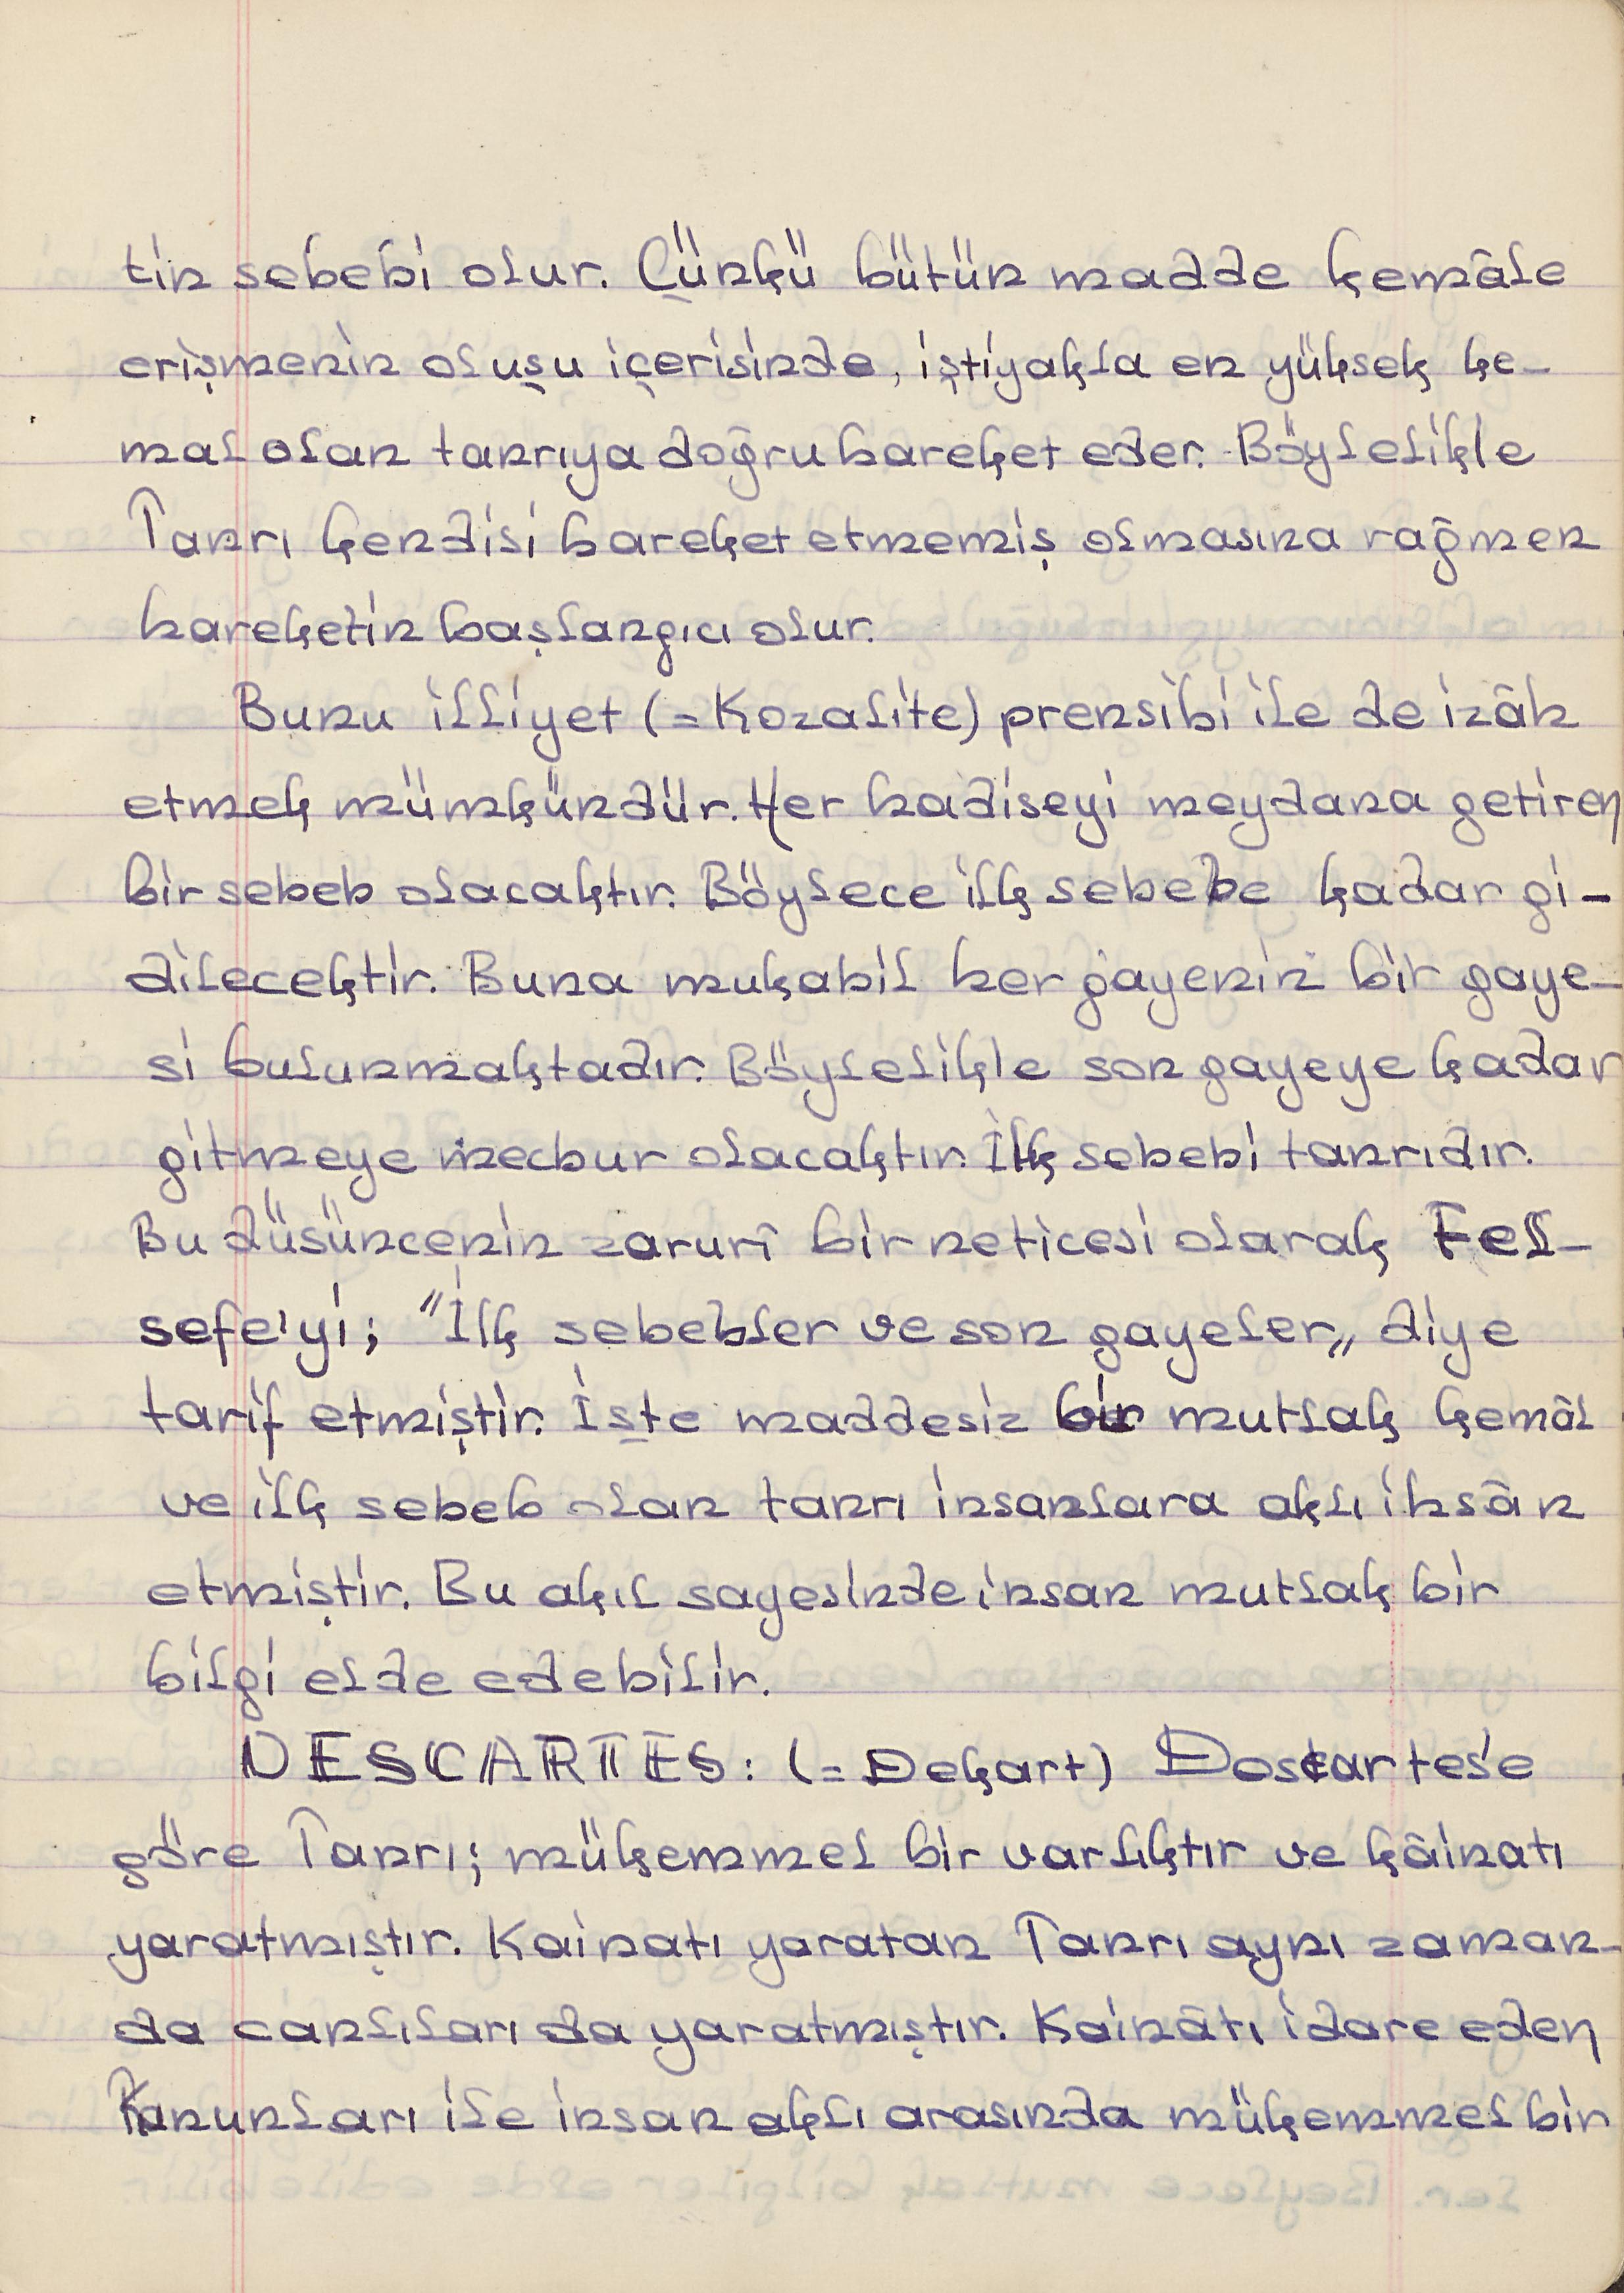 tin sebebi olur. Çünkü bütün madde kemâle
erişmenin oluşu içerisinde, iştiyakla en yüksek ke-
mal olan tanrıya doğru hareket eder. Böylelikle
Tanrı kendisi hareket etmemiş olmasına rağmen
hareketin başlangıcı olur.
Bunu illiyet (=Kozalite) prensibi ile de izâh
etmek mümkündür. Her hadiseyi meydana getiren
bir sebeb olacaktır. Böylece ilk sebebe kadar gi-
dilecektir. Buna mukabil her gayenin bir gaye-
si bulunmaktadır. Böylelikle son gayeye kadar
gitmeye mecbur olacaktır. İlk sebebi tanrıdır.
Bu düsüncenin zarurî bir neticesi olarak Fel-
sefe'yi; "İlk sebebler ve son gayeler„ diye
tarif etmiştir. İşte maddesiz bir mutlak kemâl
ve ilk sebeb olan tanrı insanlara aklı ihsân
etmiştir. Bu akıl sayesinde insan mutlak bir
bilgi elde edebilir.
DESCARTES: (=Dekart) Descartes'e
göre Tanrı; mükemmel bir varlıktır ve kâinatı
yaratmıştır. Kainatı yaratan Tanrı aynı zaman-
da canlıları da yaratmıştır. Kainâtı idare eden
Kanunları ile insan aklı arasında mükemmel bir